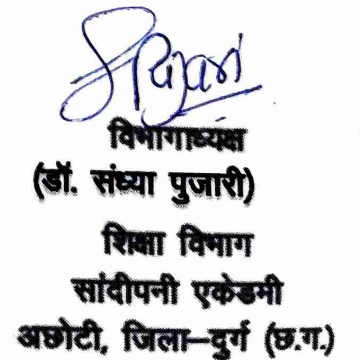 S Pujari
विभागाध्यक्ष
(डॉ. संध्या पुजारी)
शिक्षा विभाग
सांदीपनी एकेडमी
अछोटी, जिला–दुर्ग (छ.ग.)